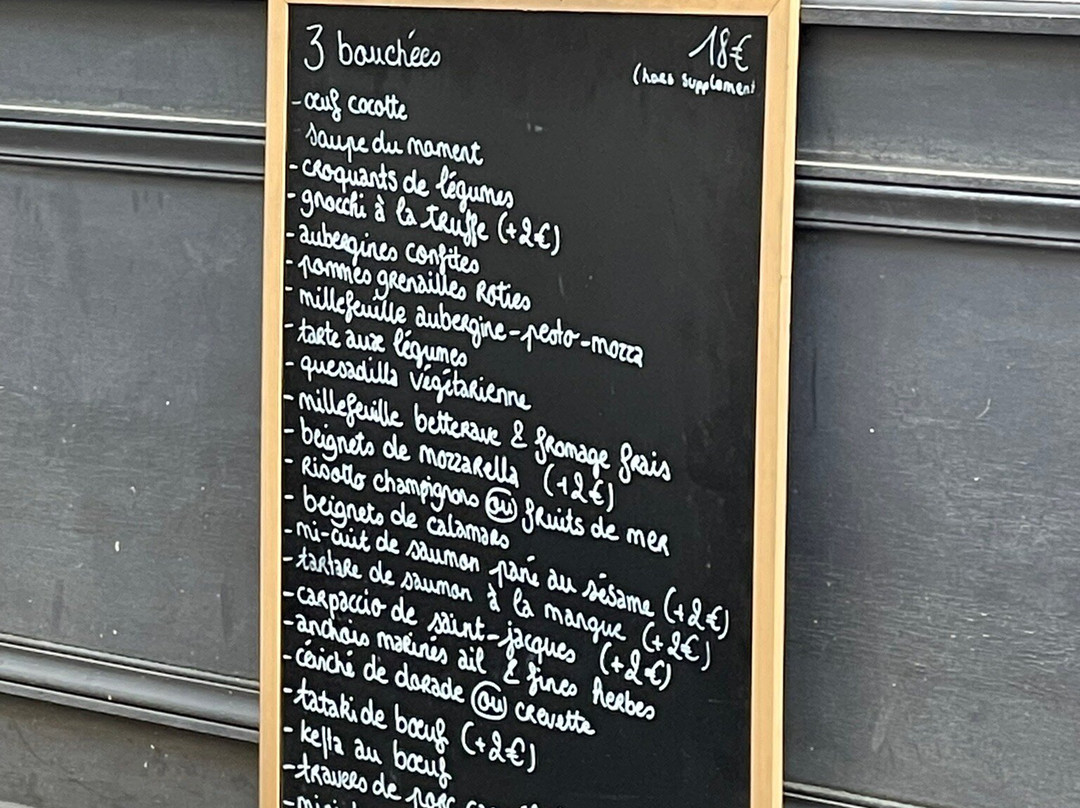 3 bouchées 18€
(hors supplement
- œuf cocotte
soupe du moment
- croquants de légumes
- gnocchi à la truffe (+2€)
- aubergines confites
- pommes grenailles roties
- millefeuille aubergine-pesto-mozza
- tarte aux légumes
- quesadilla végétarienne
- millefeuille betterave & fromage frais
- beignets de mozzarella (+2€)
- risotto champignons ou fruits de mer
- beignets de calamars
- mi-cuit de saumon pané au sésame (+2€)
- tartare de saumon à la mangue (+2€)
- carpaccio de saint-jacques (+2€)
- anchois marinés ail & fines herbes
- céviché de dorade ou crevette
- tataki de bœuf (+2€)
- kefta au bœuf
- travers de porc